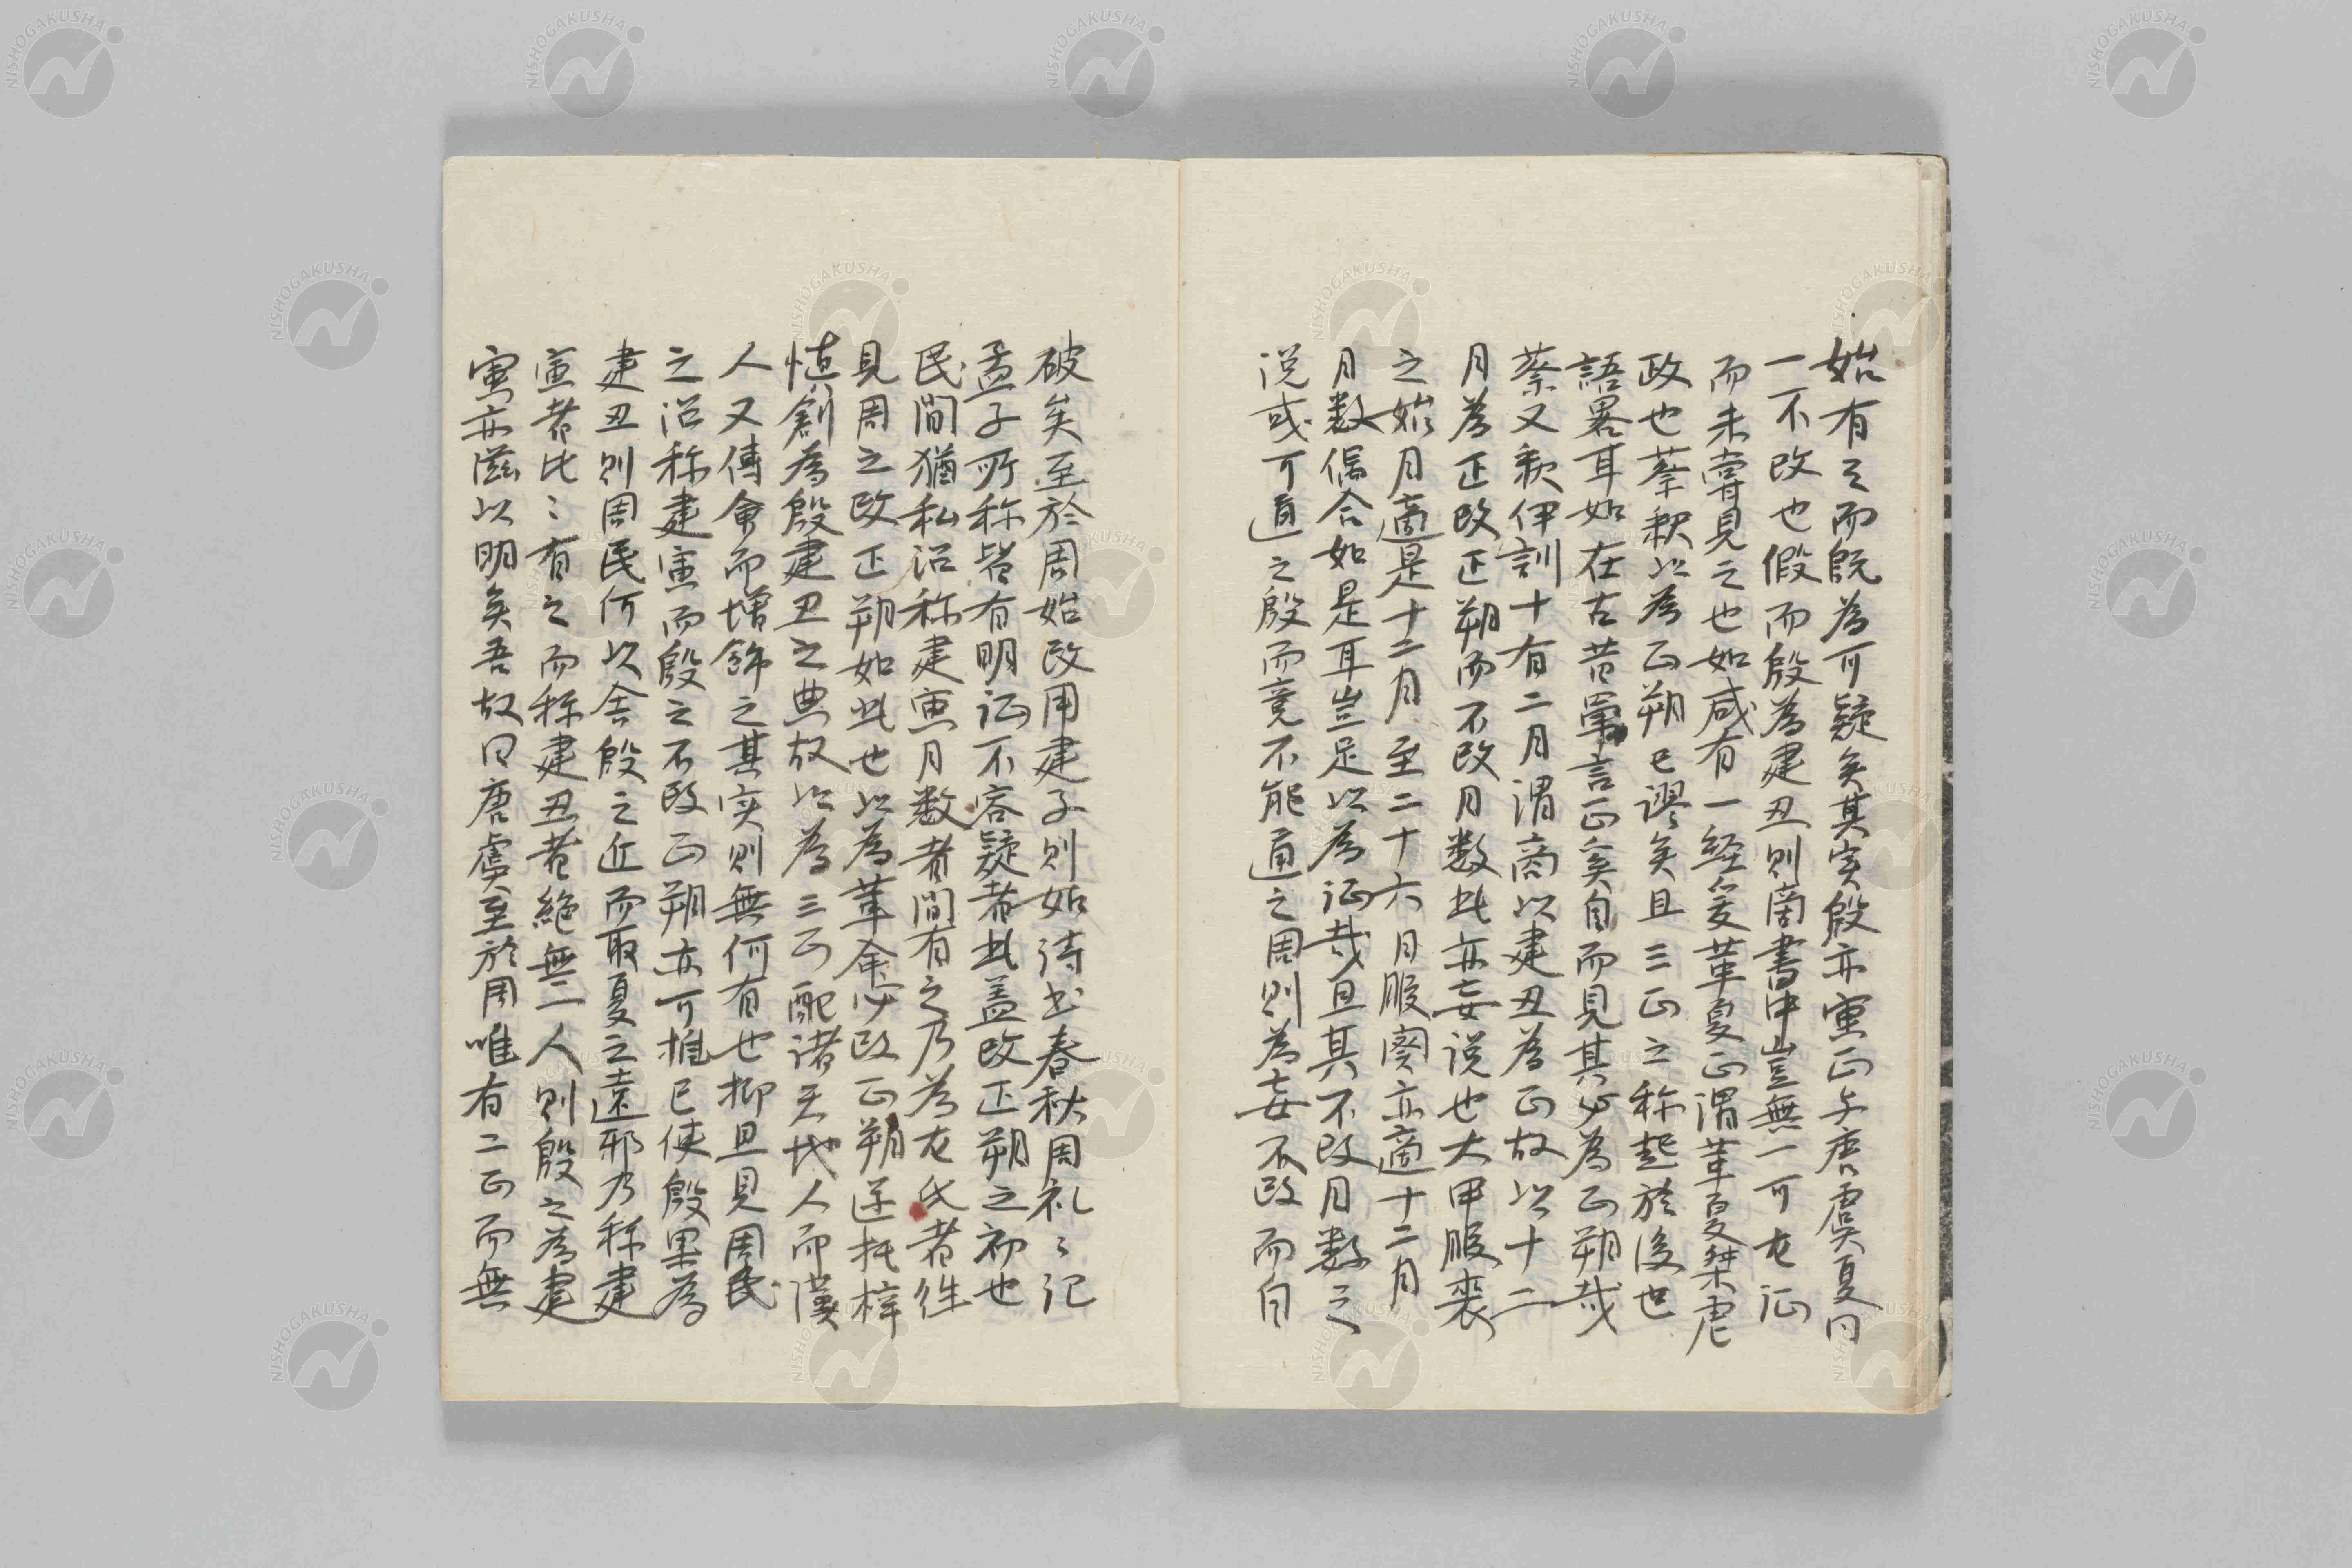 始有之而既為可疑矣其実殷亦寅正与唐虞夏同
一不改也假而殷為建丑則商書中豈無一可左証
而未嘗見之也如咸有一経爰革夏正謂革夏桀虐
政也蔡釈以為正朔已謬矣且三正之称起於後世
語畧耳如在古昔単言正奚自而見其必為正朔哉
蔡又釈伊訓十有二月謂商以建丑為正故以十二
月為正改正朔而不改月数此亦妄説也大甲服喪
之始月適是十二月至二十六月服闋亦適十二月
月数偶合如是耳豈足以為証哉且其不改月数之
説或可道之殷而竟不能通之周則為妄不改而自
破矣至於周始改用建子則如詩書春秋周礼〻記
孟子所称皆有明証不容疑者此蓋改正朔之初也
民間猶私沿称建寅月数者間有之乃為左氏者徒
見周之改正朔如此也以為革命必改正朔遂托梓
慎創為殷建丑之典故以為三正配諸天地人而漢
人又傅会而増飾之其実則無何有也抑且見周民
之沿称建寅而殷之不改正朔亦可推已使殷果為
建丑則周民何以舎殷之近而取夏之遠邪乃称建
寅者比〻有之而称建丑者絶無一人則殷之為建
寅亦滋以明矣吾故曰唐虞至於周唯有二正而無
NISHOGAKUSHA